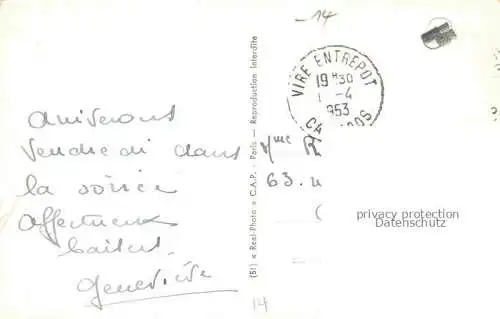 arriverons
vendredi dans
la soirée
affectueux
baisers.
Geneviève
(51) « Real-Photo » C.A.P. - Paris — Reproduction Interdite
-14
VIRE ENTREPOT
19H30
1 -4
1953
CA OS
Mme R
63.
privacy protection
Datenschutz
14